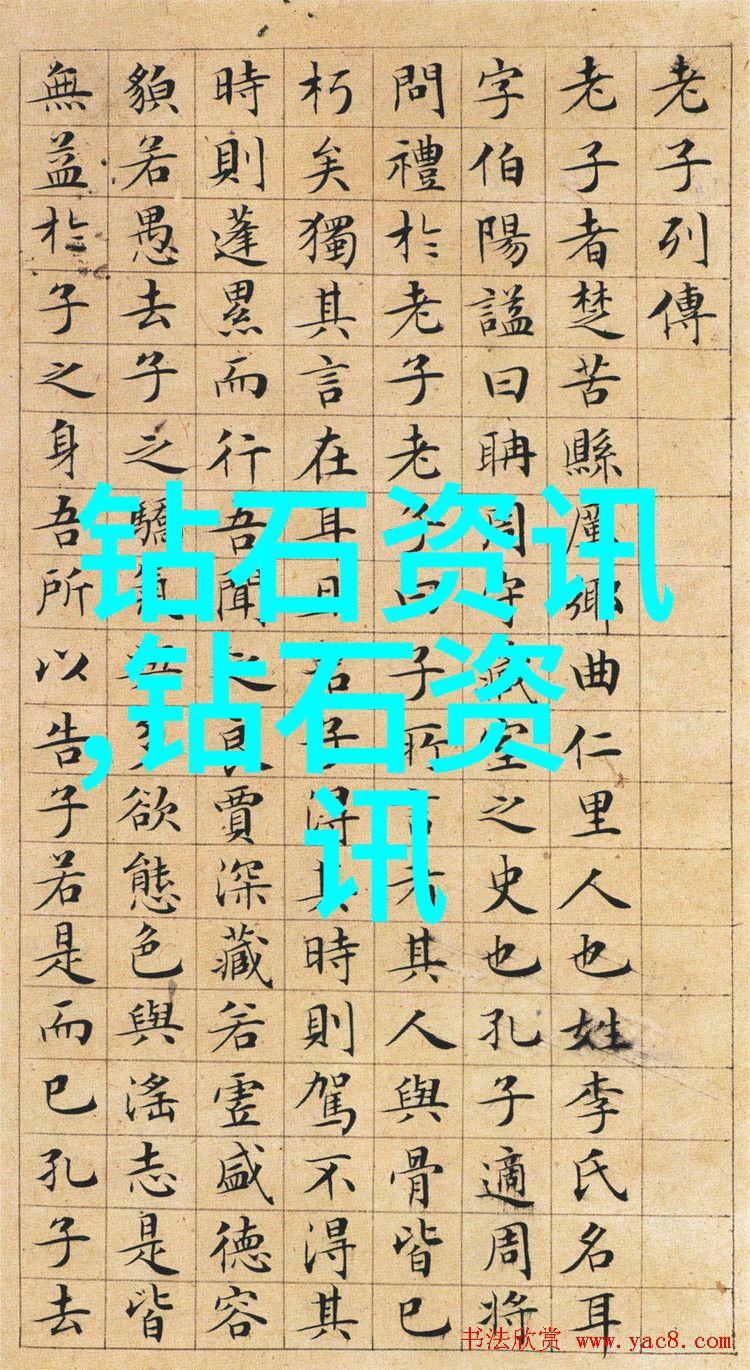 老子列傳
老子者楚苦縣厲鄉曲仁里人也姓李氏名耳
字伯陽謚曰聃周守藏室之史也孔子適周將
問禮於老子老子曰子所言者其人與骨皆已
朽矣獨其言在耳且君子得其時則駕不得其
時則蓬累而行吾聞之良賈深藏若虛盛德容
貌若愚去子之驕氣與多欲態色與淫志是皆
無益於子之身吾所以告子若是而已孔子去
钻石资讯
,钻石资
讯
书法欣赏 www.yac8.com